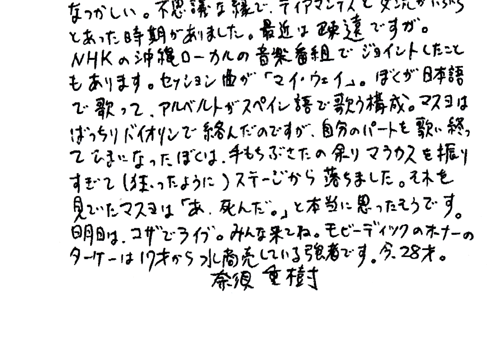 なつかしい。不思議な縁で、ディアマンテスと交流が
とあった時期がありました。最近は疎遠ですが。
NHKの沖縄ローカルの音楽番組でジョイントしたこと
もあります。セッション曲が「マイ・ウェイ」。ぼくが日本語
で歌って、アルベルトがスペイン語で歌う構成。マスヨは
ばっちりバイオリンで絡んだのですが、自分のパートを歌い終っ
てひまになったぼくは、手もちぶさたの余りマラカスを振り
すぎて(狂ったように)ステージから落ちました。それを
見ていたマスヨは「あ、死んだ。」と本当に思ったそうです。
明日は、コザでライブ。みんな来てね。モビーディックのオーナーの
ターケーは17才から水商売している強者です。今、28才。
奈須 重樹